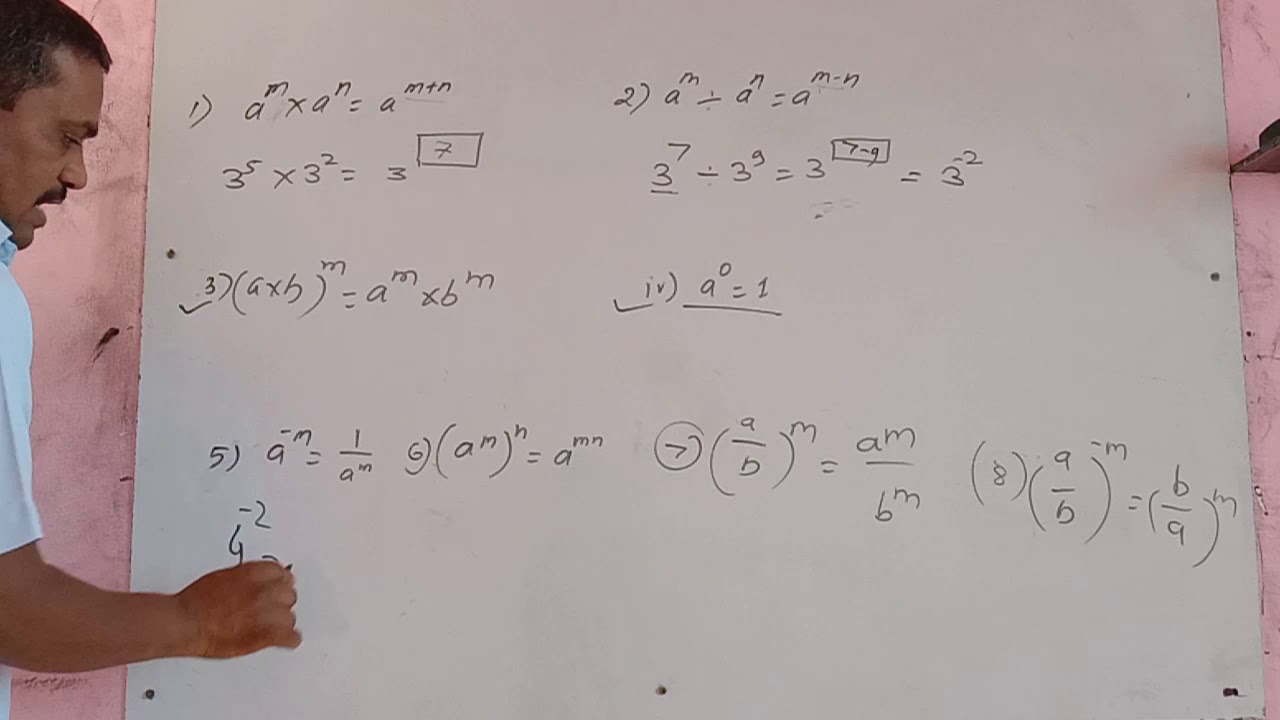 1) a^m × a^n = a^(m+n)
2) a^m ÷ a^n = a^(m-n)
3^5 × 3^2 = 3^7
3^7 ÷ 3^9 = 3^(7-9) = 3^-2
3) (a×b)^m = a^m × b^m
iv) a^0 = 1
5) a^-m = 1/a^m
6) (a^m)^n = a^mn
7) (a/b)^m = a^m/b^m
(8) (a/b)^-m = (b/a)^m
4^-2 =